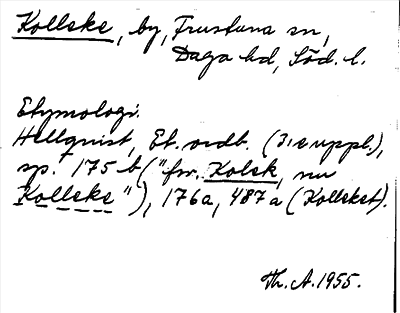 Kollske, by, Frustuna sn,
Daga hd, Söd. l.
Etymologi.
Hellquist, Et. ordb. (3:e uppl.),
sp. 175 b ("fvr. Kolsk, nu
Kollske"), 176a, 487a (Kollekt).
Th. A. 1955.